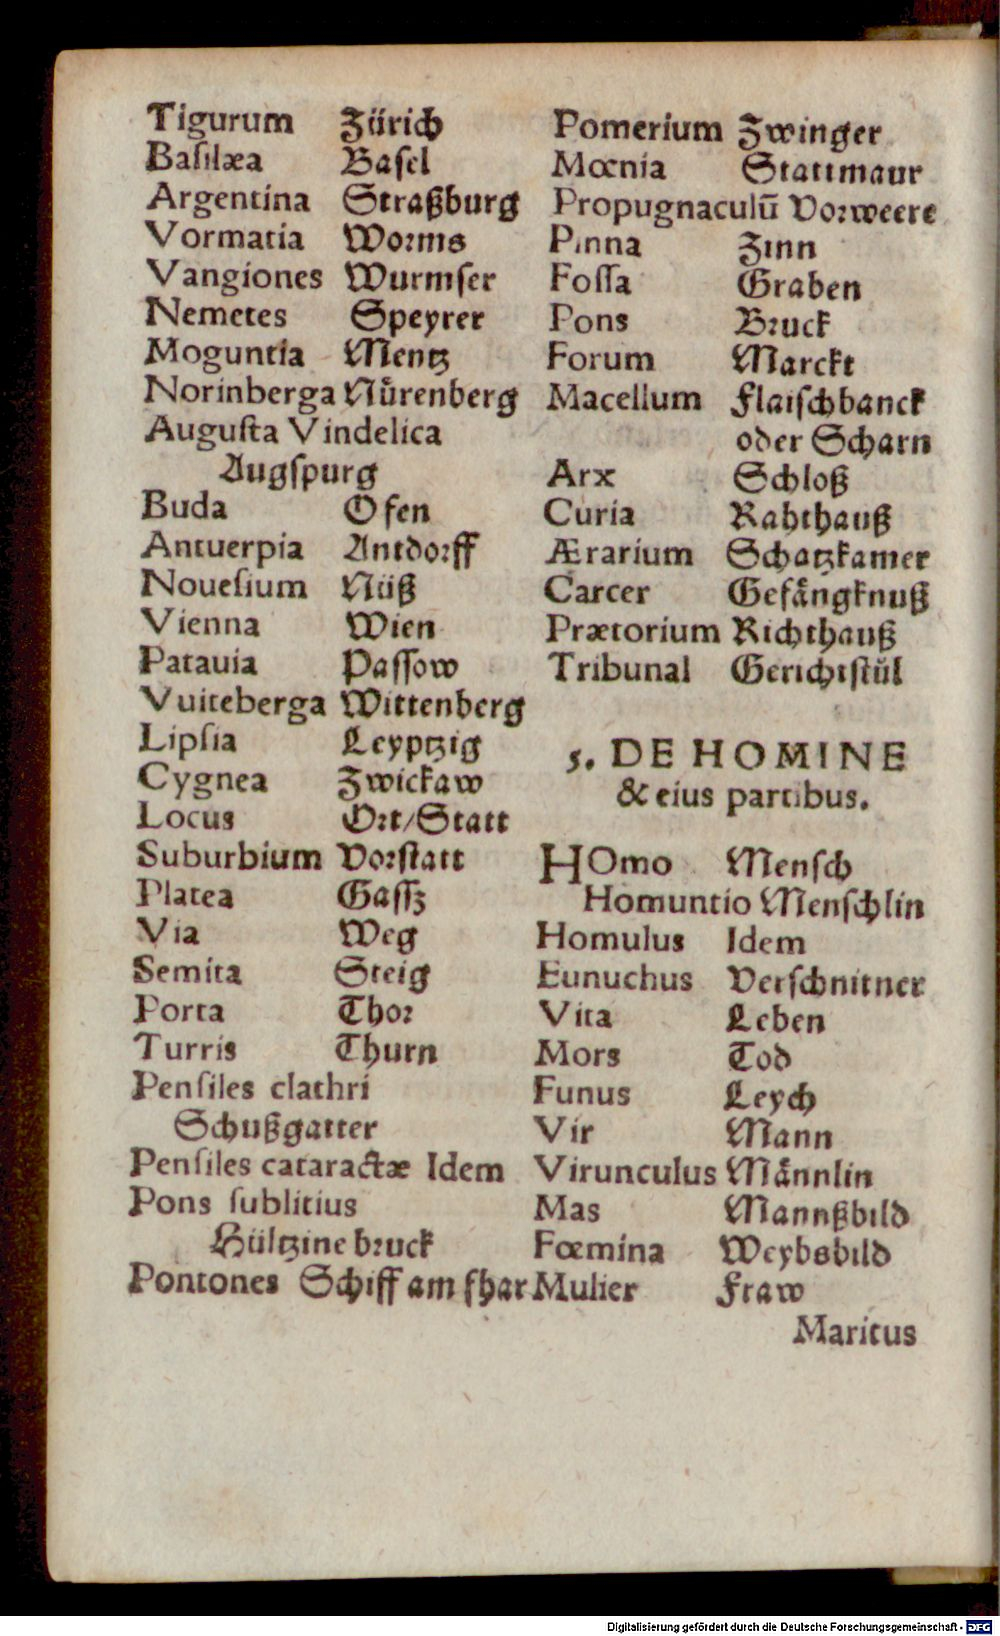 Tigurum Zürich
Basilæa Basel
Argentina Straßburg
Vormatia Worms
Vangiones Wurmser
Nemetes Speyrer
Moguntia Mentz
Norinberga Nůrenberg
Augusta Vindelica
Augspurg
Buda Ofen
Antuerpia Antdorff
Nouesium Nüß
Vienna Wien
Patauia Passow
Vuiteberga Wittenberg
Lipsia Leyptzig
Cygnea Zwickaw
Locus Ort/Statt
Suburbium Vorstatt
Platea Gassz
Via Weg
Semita Steig
Porta Thor
Turris Thurn
Pensiles clathri
Schußgatter
Pensiles cataractæ Idem
Pons sublitius
Hültzine bruck
Pontones Schiff am fhar
Pomerium Zwinger
Mœnia Stattmaur
Propugnaculū Vorweere
Pinna Zinn
Fossa Graben
Pons Bruck
Forum Marckt
Macellum Flaischbanck
oder Scharn
Arx Schloß
Curia Rahthauß
Ærarium Schatzkamer
Carcer Gefångknuß
Prætorium Richthauß
Tribunal Gerichtstůl
5. DE HOMINE
& eius partibus.
HOmo Mensch
Homuntio Menschlin
Homulus Idem
Eunuchus Verschnitner
Vita Leben
Mors Tod
Funus Leych
Vir Mann
Virunculus Månnlin
Mas Mannßbild
Fœmina Weybsbild
Mulier Fraw
Maritus
Digitalisierung gefördert durch die Deutsche Forschungsgemeinschaft - DFG